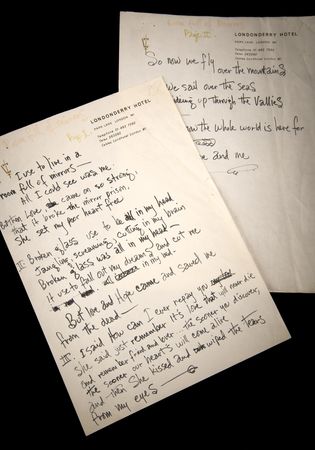 Page I.
LONDONDERRY HOTEL
PARK LANE LONDON W1
I use to live in a
room full of mirrors —
All I could see was me.
came on so strong,
that it broke the mirror prison.
She set my poor heart free
II: Broken glass use to be all in my head
Jangling screaming cutting in my brain
Broken glass was all in my head —
It use to fall out my dreams and cut me
in my bed —
But love and Hope came and saved me
from the dead —
III: I said How can I ever repay you
She said just remember it's love that will never die
and remember friend and lover the sooner you discover,
the sooner our heart's will come alive
and then she kissed and wiped the tears
from my eyes
Page II
LONDONDERRY HOTEL
PARK LANE LONDON W1
So now we fly
over the mountains
we sail over the seas
up through the Vallies
now the whole world is here for
me and me